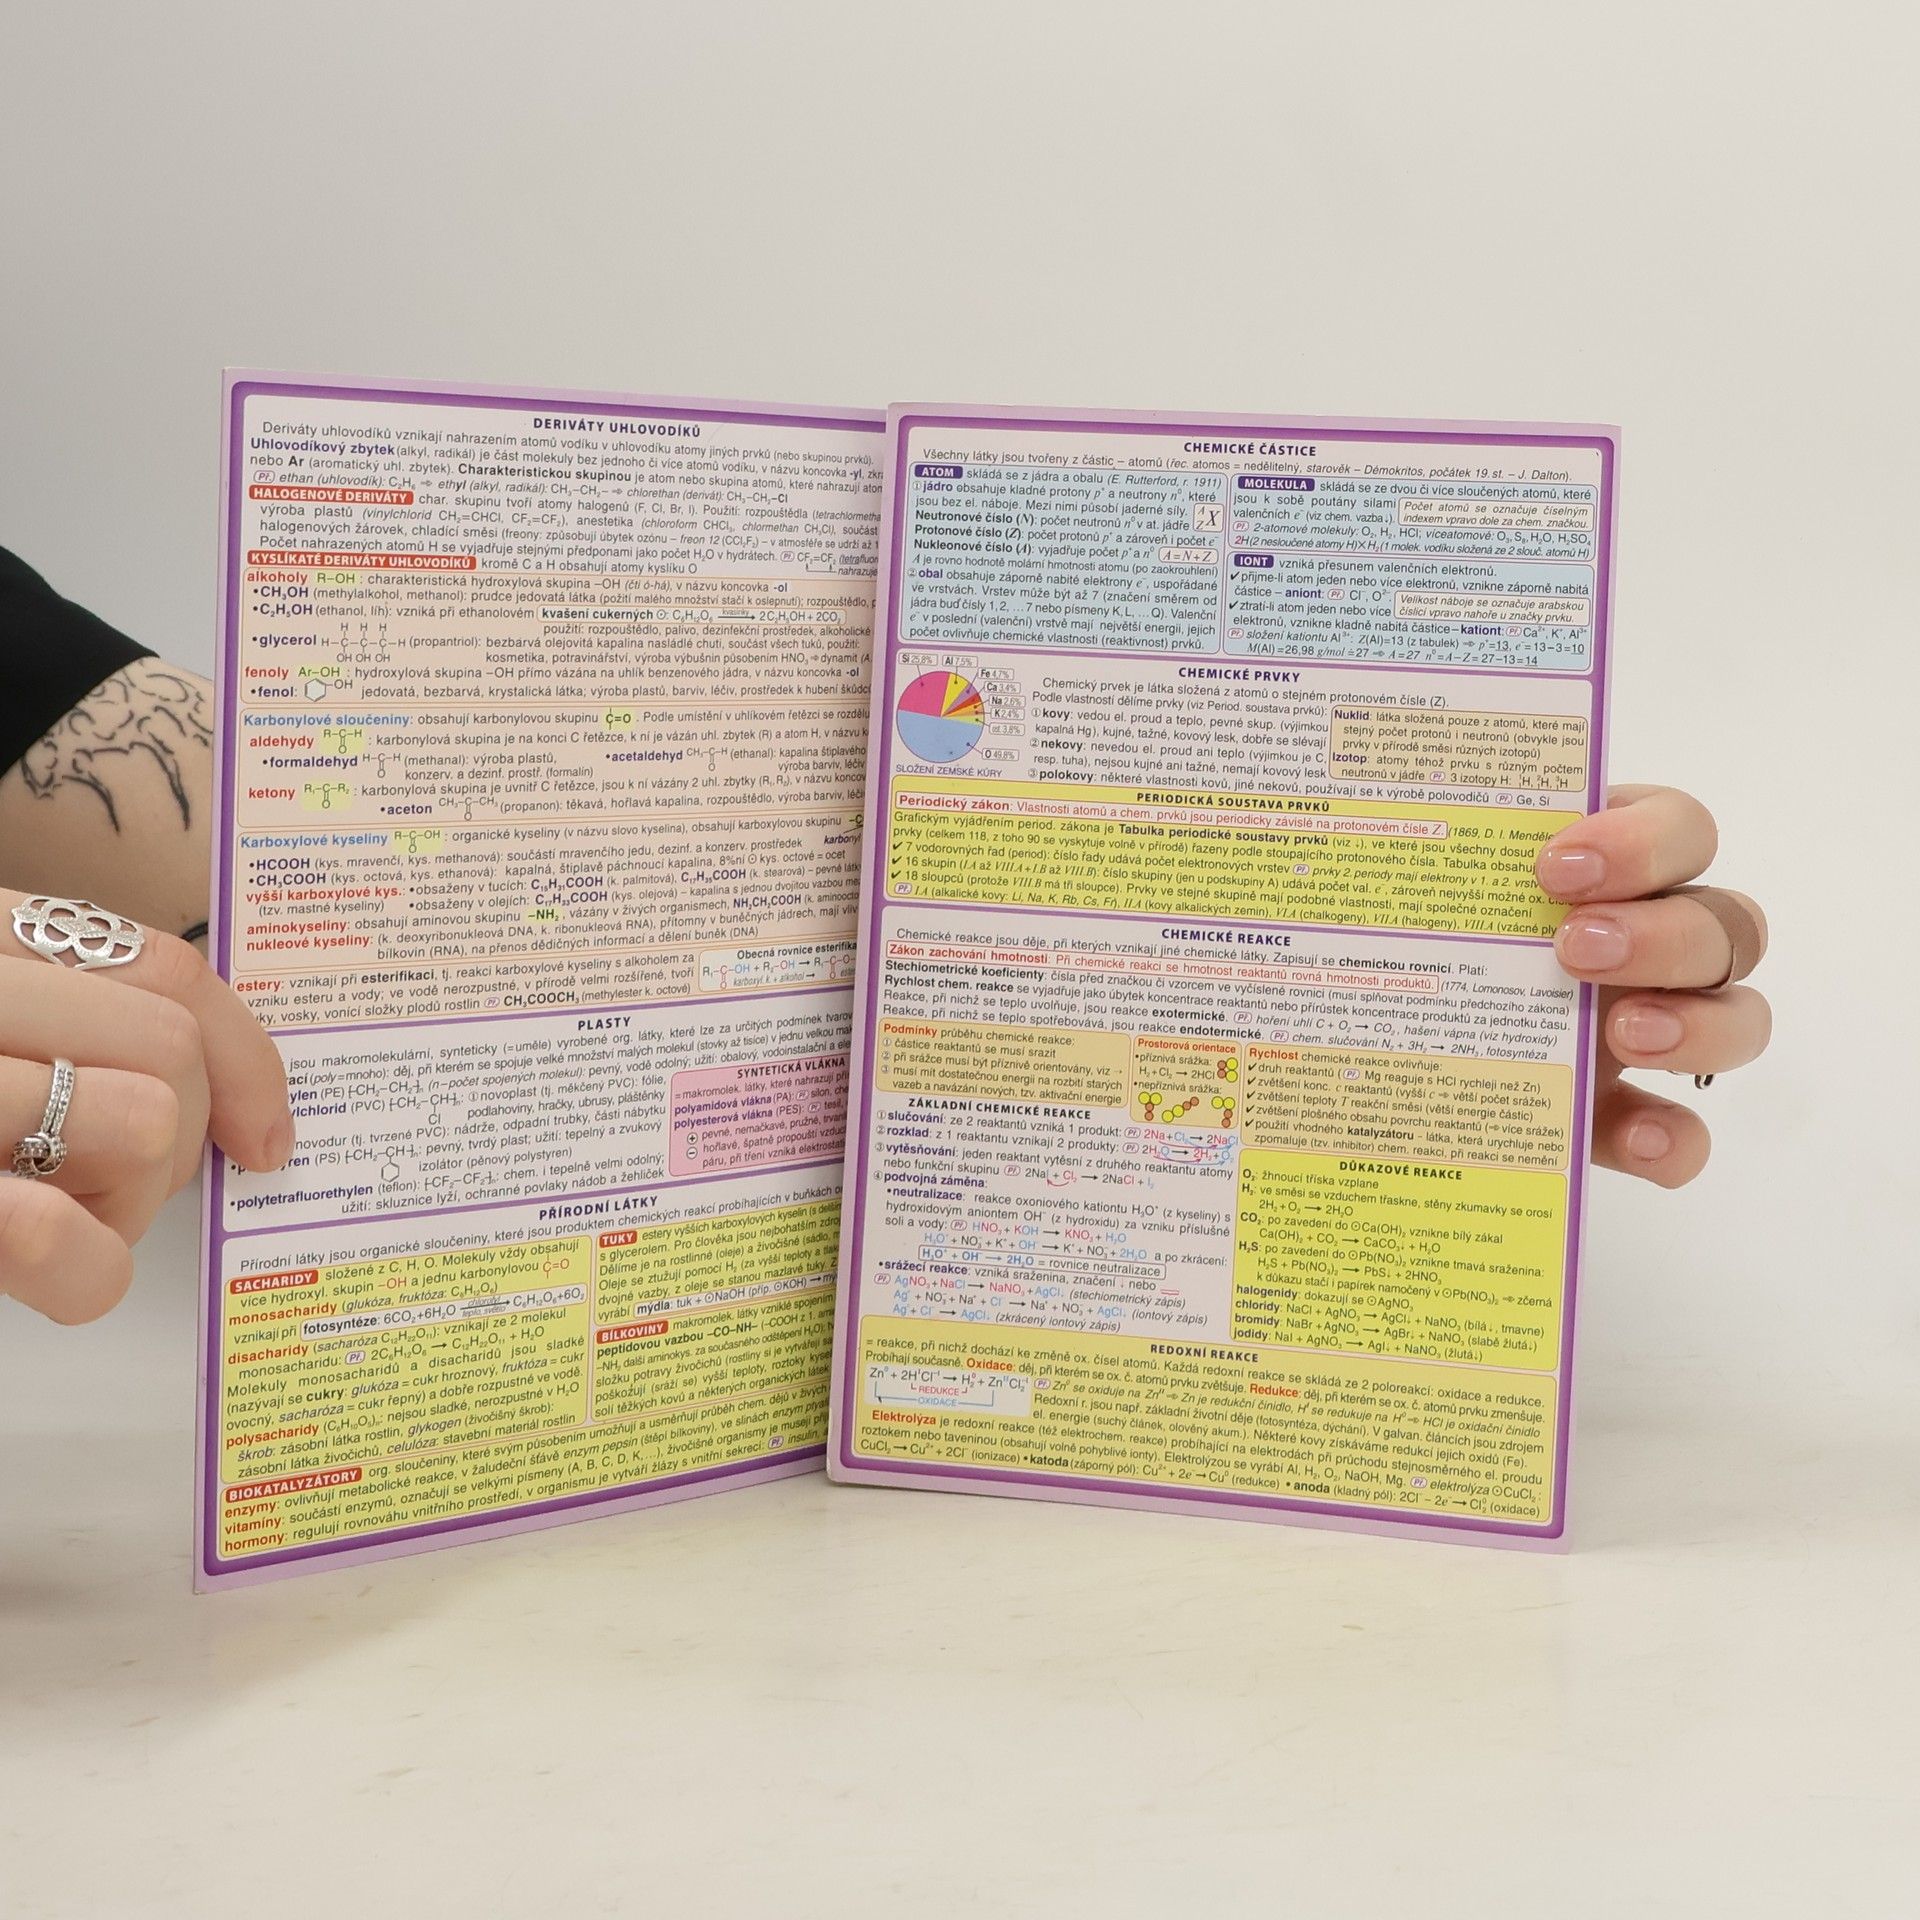 DERIVÁTY UHLOVODÍKŮ
Deriváty uhlovodíků vznikají nahrazením atomů vodíku v uhlovodíku atomy jiných prvků (nebo skupinou prvků).
Uhlovodíkový zbytek (alkyl, radikál) je část molekuly bez jednoho či více atomů vodíku, v názvu koncovka -yl,
nebo Ar (aromatický uhl. zbytek). Charakteristickou skupinou je atom nebo skupina atomů, které nahrazují
Př. ethan (uhlovodík): C₂H₆ ⇒ ethyl (alkyl, radikál): CH₃–CH₂– ⇒ chlorethan (derivát): CH₃–CH₂–Cl
HALOGENOVÉ DERIVÁTY char. skupinu tvoří atomy halogenů (F, Cl, Br, I). Použití: rozpouštědla
výroba plastů (vinylchlorid CH₂=CHCl, CF₂=CF₂), anestetika (chloroform CHCl₃, chlormethan CH₃Cl),
halogenových žárovek, chladicí směsi (freony: způsobují úbytek ozónu – freon 12 (CCl₂F₂) – v atmosféře se udrží až
Počet nahrazených atomů H se vyjadřuje stejnými předponami jako počet H₂O v hydrátech. Př. CF₂=CF₂
KYSLÍKATÉ DERIVÁTY UHLOVODÍKŮ kromě C a H obsahují atomy kyslíku O
alkoholy R–OH : charakteristická hydroxylová skupina –OH (čti ó-há), v názvu koncovka -ol
•CH₃OH (methylalkohol, methanol): prudce jedovatá látka (požití malého množství stačí k oslepnutí); rozpouštědlo,
•C₂H₅OH (ethanol, líh): vzniká při ethanolovém kvašení cukerných ⊙: C₆H₁₂O₆ kvasinky → 2C₂H₅OH + 2CO₂
použití: rozpouštědlo, palivo, dezinfekční prostředek, alkoholické
•glycerol H–C–C–C–H (propantriol): bezbarvá olejovitá kapalina nasládlé chuti, součást všech tuků, použití:
kosmetika, potravinářství, výroba výbušnin působením HNO₃ ⇒ dynamit
fenoly Ar–OH : hydroxylová skupina –OH přímo vázána na uhlík benzenového jádra, v názvu koncovka -ol
•fenol: OH jedovatá, bezbarvá, krystalická látka; výroba plastů, barviv, léčiv, prostředek k hubení
Karbonylové sloučeniny: obsahují karbonylovou skupinu C=O . Podle umístění v uhlíkovém řetězci se
aldehydy R–C–H : karbonylová skupina je na konci C řetězce, k ní je vázán uhl. zbytek (R) a atom H, v názvu
•formaldehyd H–C–H (methanal): výroba plastů, •acetaldehyd CH₃–C–H (ethanal): kapalina štiplavého
konzerv. a dezinf. prostř. (formalín) výroba barviv,
ketony R₁–C–R₂ : karbonylová skupina je uvnitř C řetězce, jsou k ní vázány 2 uhl. zbytky (R₁, R₂), v názvu
•aceton CH₃–C–CH₃ (propanon): těkavá, hořlavá kapalina, rozpouštědlo, výroba barviv,
Karboxylové kyseliny R–C–OH : organické kyseliny (v názvu slovo kyselina), obsahují karboxylovou skupinu
•HCOOH (kys. mravenčí, kys. methanová): součástí mravenčího jedu, dezinf. a konzerv. prostředek
•CH₃COOH (kys. octová, kys. ethanová): kapalná, štiplavě páchnoucí kapalina, 8%ní ⊙ kys. octové = ocet
vyšší karboxylové kys.: •obsaženy v tucích: C₁₅H₃₁COOH (k. palmitová), C₁₇H₃₅COOH (k. stearová) – pevné
(tzv. mastné kyseliny) •obsaženy v olejích: C₁₇H₃₃COOH (kys. olejová) – kapalina s jednou dvojitou vazbou
aminokyseliny: obsahují aminovou skupinu –NH₂, vázány v živých organismech, NH₂CH₂COOH
nukleové kyseliny: (k. deoxyribonukleová DNA, k. ribonukleová RNA), přítomny v buněčných jádrech, mají
bílkovin (RNA), na přenos dědičných informací a dělení buněk (DNA)
estery: vznikají při esterifikaci, tj. reakci karboxylové kyseliny s alkoholem za
vzniku esteru a vody; ve vodě nerozpustné, v přírodě velmi rozšířené, tvoří
vosky, vonící složky plodů rostlin Př. CH₃COOCH₃ (methylester k. octové)
Obecná rovnice
R₁–C–OH + R₂–OH → R₁–C–O–
karboxyl. k. + alkohol →
PLASTY
jsou makromolekulární, synteticky (=uměle) vyrobené org. látky, které lze za určitých podmínek
(poly=mnoho): děj, při kterém se spojuje velké množství malých molekul (stovky až tisíce) v jednu velkou
(PE) [CH₂–CH₂]ₙ (n–počet spojených molekul): pevný, vodě odolný; užití: obalový, vodoinstalační a
(PVC) [CH₂–CH]ₙ: ①novoplast (tj. měkčený PVC): fólie,
Cl podlahoviny, hračky, ubrusy, pláštěnky
novodur (tj. tvrzené PVC): nádrže, odpadní trubky, části nábytku
(PS) [CH₂–CH]ₙ: pevný, tvrdý plast; užití: tepelný a zvukový
izolátor (pěnový polystyren)
•polytetrafluorethylen (teflon): [CF₂–CF₂]ₙ: chem. i tepelně velmi odolný;
užití: skluznice lyží, ochranné povlaky nádob a žehliček
SYNTETICKÁ VLÁKNA
=makromolek. látky, které nahrazují
polyamidová vlákna (PA): Př. silon,
polyesterová vlákna (PES): Př. tesil,
⊕ pevné, nemačkavé, pružné,
⊖ hořlavé, špatně propouští
páru, při tření vzniká
PŘÍRODNÍ LÁTKY
Přírodní látky jsou organické sloučeniny, které jsou produktem chemických reakcí probíhajících v buňkách
SACHARIDY složené z C, H, O. Molekuly vždy obsahují
více hydroxyl. skupin –OH a jednu karbonylovou C=O
monosacharidy (glukóza, fruktóza: C₆H₁₂O₆)
vznikají při fotosyntéze: 6CO₂+6H₂O chlorofyl teplo,světlo → C₆H₁₂O₆+6O₂
disacharidy (sacharóza C₁₂H₂₂O₁₁): vznikají ze 2 molekul
monosacharidu: Př. 2C₆H₁₂O₆ → C₁₂H₂₂O₁₁ + H₂O
Molekuly monosacharidů a disacharidů jsou sladké
(nazývají se cukry: glukóza = cukr hroznový, fruktóza = cukr
ovocný, sacharóza = cukr řepný) a dobře rozpustné ve vodě.
polysacharidy (C₆H₁₀O₅)ₙ: nejsou sladké, nerozpustné v H₂O
škrob: zásobní látka rostlin, glykogen (živočišný škrob):
zásobní látka živočichů, celulóza: stavební materiál rostlin
TUKY estery vyšších karboxylových kyselin
s glycerolem. Pro člověka jsou nejbohatším
Dělíme je na rostlinné (oleje) a živočišné (sádlo,
Oleje se ztužují pomocí H₂ (za vyšší teploty a
dvojné vazby, z oleje se stanou mazlavé tuky.
vyrábí mýdla: tuk + ⊙NaOH (příp. ⊙KOH) →
BÍLKOVINY makromolek. látky vzniklé spojením
peptidovou vazbou –CO–NH– (–COOH z 1.
–NH₂ další aminokys. za současného odštěpení H₂O);
složku potravy živočichů (rostliny si je vytvářejí
poškozují (sráží se) vyšší teploty, roztoky
solí těžkých kovů a některých organických látek
BIOKATALYZÁTORY org. sloučeniny, které svým působením umožňují a usměrňují průběh chem. dějů v živých
enzymy: ovlivňují metabolické reakce, v žaludeční šťávě enzym pepsin (štěpí bílkoviny), ve slinách enzym
vitamíny: součástí enzymů, označují se velkými písmeny (A, B, C, D, K,...), živočišné organismy je musejí
hormony: regulují rovnováhu vnitřního prostředí, v organismu je vytváří žlázy s vnitřní sekrecí: Př. insulin,
CHEMICKÉ ČÁSTICE
Všechny látky jsou tvořeny z částic – atomů (řec. atomos = nedělitelný, starověk – Démokritos, počátek 19. st. – J. Dalton).
ATOM skládá se z jádra a obalu (E. Rutterford, r. 1911)
①jádro obsahuje kladné protony p⁺ a neutrony n⁰, které
jsou bez el. náboje. Mezi nimi působí jaderné síly.
Neutronové číslo (N): počet neutronů n⁰ v at. jádře
Protonové číslo (Z): počet protonů p⁺ a zároveň i počet e⁻
Nukleonové číslo (A): vyjadřuje počet p⁺ a n⁰ A=N+Z
A je rovno hodnotě molární hmotnosti atomu (po zaokrouhlení)
②obal obsahuje záporně nabité elektrony e⁻, uspořádané
ve vrstvách. Vrstev může být až 7 (značení směrem od
jádra buď čísly 1,2, ...7 nebo písmeny K, L, ... Q). Valenční
e⁻ v poslední (valenční) vrstvě mají největší energii, jejich
počet ovlivňuje chemické vlastnosti (reaktivnost) prvků.
MOLEKULA skládá se ze dvou či více sloučených atomů, které
jsou k sobě poutány silami
valenčních e⁻ (viz chem. vazba↓).
Počet atomů se označuje číselným
indexem vpravo dole za chem. značkou.
Př. 2-atomové molekuly: O₂, H₂, HCl; víceatomové: O₃, S₈, H₂O, H₂SO₄
2H(2 nesloučené atomy H)×H₂(1 molek. vodíku složená ze 2 slouč. atomů H)
IONT vzniká přesunem valenčních elektronů.
✔přijme-li atom jeden nebo více elektronů, vznikne záporně nabitá
částice – aniont: Př. Cl⁻, O²⁻
✔ztratí-li atom jeden nebo více
Velikost náboje se označuje arabskou
číslicí vpravo nahoře u značky prvku.
elektronů, vznikne kladně nabitá částice–kationt: Př. Ca²⁺, K⁺, Al³⁺
Př. složení kationtu Al³⁺: Z(Al)=13 (z tabulek) ⇒ p⁺=13, e⁻=13–3=10
M(Al)=26,98 g/mol ≐27 ⇒ A=27 n⁰=A–Z=27–13=14
CHEMICKÉ PRVKY
Si 25,8%
Al 7,5%
Fe 4,7%
Ca 3,4%
Na 2,6%
K 2,4%
ost. 3,8%
O 49,8%
SLOŽENÍ ZEMSKÉ KŮRY
Chemický prvek je látka složená z atomů o stejném protonovém čísle (Z).
Podle vlastností dělíme prvky (viz Period. soustava prvků):
①kovy: vedou el. proud a teplo, pevné skup. (výjimkou
kapalná Hg), kujné, tažné, kovový lesk, dobře se slévají
②nekovy: nevedou el. proud ani teplo (výjimkou je C,
resp. tuha), nejsou kujné ani tažné, nemají kovový lesk
③polokovy: některé vlastnosti kovů, jiné nekovů, používají se k výrobě polovodičů Př. Ge, Si
Nuklid: látka složená pouze z atomů, které mají
stejný počet protonů i neutronů (obvykle jsou
prvky v přírodě směsi různých izotopů)
Izotop: atomy téhož prvku s různým počtem
neutronů v jádře Př. 3 izotopy H: ¹H, ²H, ³H
PERIODICKÁ SOUSTAVA PRVKŮ
Periodický zákon: Vlastnosti atomů a chem. prvků jsou periodicky závislé na protonovém čísle Z. (1869, D. I.
Grafickým vyjádřením period. zákona je Tabulka periodické soustavy prvků (viz ↓), ve které jsou všechny dosud
prvky (celkem 118, z toho 90 se vyskytuje volně v přírodě) řazeny podle stoupajícího protonového čísla. Tabulka
✔7 vodorovných řad (period): číslo řady udává počet elektronových vrstev Př. prvky 2. periody mají elektrony v 1. a 2.
✔16 skupin (I.A až VIII.A+I.B až VIII.B): číslo skupiny (jen u podskupiny A) udává počet val. e⁻, zároveň nejvyšší možné ox.
✔18 sloupců (protože VIII.B má tři sloupce). Prvky ve stejné skupině mají podobné vlastnosti, mají společné označení
Př. I.A (alkalické kovy: Li, Na, K, Rb, Cs, Fr), II.A (kovy alkalických zemin), VI.A (chalkogeny), VII.A (halogeny), VIII.A (vzácné
CHEMICKÉ REAKCE
Chemické reakce jsou děje, při kterých vznikají jiné chemické látky. Zapisují se chemickou rovnicí. Platí:
Zákon zachování hmotnosti: Při chemické reakci se hmotnost reaktantů rovná hmotnosti produktů. (1774, Lomonosov, Lavoisier)
Stechiometrické koeficienty: čísla před značkou či vzorcem ve vyčíslené rovnici (musí splňovat podmínku předchozího zákona)
Rychlost chem. reakce se vyjadřuje jako úbytek koncentrace reaktantů nebo přírůstek koncentrace produktů za jednotku času.
Reakce, při nichž se teplo uvolňuje, jsou reakce exotermické. Př. hoření uhlí C + O₂ → CO₂, hašení vápna (viz hydroxidy)
Reakce, při nichž se teplo spotřebovává, jsou reakce endotermické. Př. chem. slučování N₂ + 3H₂ → 2NH₃, fotosyntéza
Podmínky průběhu chemické reakce:
① částice reaktantů se musí srazit
② při srážce musí být příznivě orientovány, viz →
③ musí mít dostatečnou energii na rozbití starých
vazeb a navázání nových, tzv. aktivační energie
Prostorová orientace
•příznivá srážka:
H₂+Cl₂ → 2HCl
•nepříznivá srážka:
Rychlost chemické reakce ovlivňuje:
✔druh reaktantů (Př. Mg reaguje s HCl rychleji než Zn)
✔zvětšení konc. c reaktantů (vyšší c ⇒ větší počet srážek)
✔zvětšení teploty T reakční směsi (větší energie částic)
✔zvětšení plošného obsahu povrchu reaktantů (⇒více srážek)
✔použití vhodného katalyzátoru - látka, která urychluje nebo
zpomaluje (tzv. inhibitor) chem. reakci, při reakci se nemění
ZÁKLADNÍ CHEMICKÉ REAKCE
①slučování: ze 2 reaktantů vzniká 1 produkt: Př. 2Na+Cl₂ → 2NaCl
②rozklad: z 1 reaktantu vznikají 2 produkty: Př. 2H₂O → 2H₂+O₂
③vytěsňování: jeden reaktant vytěsní z druhého reaktantu atomy
nebo funkční skupinu Př. 2NaI + Cl₂ → 2NaCl + I₂
④podvojná záměna:
•neutralizace: reakce oxoniového kationtu H₃O⁺ (z kyseliny) s
hydroxidovým aniontem OH⁻ (z hydroxidu) za vzniku příslušné
soli a vody: Př. HNO₃ + KOH → KNO₃ + H₂O
H₃O⁺ + NO₃⁻ + K⁺ + OH⁻ → K⁺ + NO₃⁻ + 2H₂O a po zkrácení:
H₃O⁺ + OH⁻ → 2H₂O = rovnice neutralizace
•srážecí reakce: vzniká sraženina, značení ↓ nebo
Př. AgNO₃ + NaCl → NaNO₃ + AgCl↓ (stechiometrický zápis)
Ag⁺ + NO₃⁻ + Na⁺ + Cl⁻ → Na⁺ + NO₃⁻ + AgCl↓ (iontový zápis)
Ag⁺ + Cl⁻ → AgCl↓ (zkrácený iontový zápis)
DŮKAZOVÉ REAKCE
O₂: žhnoucí tříska vzplane
H₂: ve směsi se vzduchem třaskne, stěny zkumavky se orosí
2H₂ + O₂ → 2H₂O
CO₂: po zavedení do ⊙Ca(OH)₂ vznikne bílý zákal
Ca(OH)₂ + CO₂ → CaCO₃↓ + H₂O
H₂S: po zavedení do ⊙Pb(NO₃)₂ vznikne tmavá sraženina:
H₂S + Pb(NO₃)₂ → PbS↓ + 2HNO₃
k důkazu stačí i papírek namočený v ⊙Pb(NO₃)₂ ⇒ zčerná
halogenidy: dokazují se ⊙AgNO₃
chloridy: NaCl + AgNO₃ → AgCl↓ + NaNO₃ (bílá↓, tmavne)
bromidy: NaBr + AgNO₃ → AgBr↓ + NaNO₃ (slabě žlutá↓)
jodidy: NaI + AgNO₃ → AgI↓ + NaNO₃ (žlutá↓)
REDOXNÍ REAKCE
= reakce, při nichž dochází ke změně ox. čísel atomů. Každá redoxní reakce se skládá ze 2 poloreakcí: oxidace a redukce.
Probíhají současně. Oxidace: děj, při kterém se ox. č. atomů prvku zvětšuje. Redukce: děj, při kterém se ox. č. atomů prvku zmenšuje.
Zn⁰ + 2HᴵClᴵ⁻ → H₂⁰ + ZnᴵᴵCl₂⁻ᴵ
REDUKCE
OXIDACE
Př. Zn⁰ se oxiduje na Znᴵᴵ ⇒ Zn je redukční činidlo, Hᴵ se redukuje na H⁰ ⇒ HCl je oxidační činidlo
Redoxní r. jsou např. základní životní děje (fotosyntéza, dýchání). V galvan. článcích jsou zdrojem
el. energie (suchý článek, olověný akum.). Některé kovy získáváme redukcí jejich oxidů (Fe).
Elektrolýza je redoxní reakce (též elektrochem. reakce) probíhající na elektrodách při průchodu stejnosměrného el. proudu
roztokem nebo taveninou (obsahují volně pohyblivé ionty). Elektrolýzou se vyrábí Al, H₂, O₂, NaOH, Mg. Př. elektrolýza ⊙CuCl₂:
CuCl₂ → Cu²⁺ + 2Cl⁻ (ionizace) • katoda (záporný pól): Cu²⁺ + 2e⁻ → Cu⁰ (redukce) • anoda (kladný pól): 2Cl⁻ – 2e⁻ → Cl₂⁰ (oxidace)